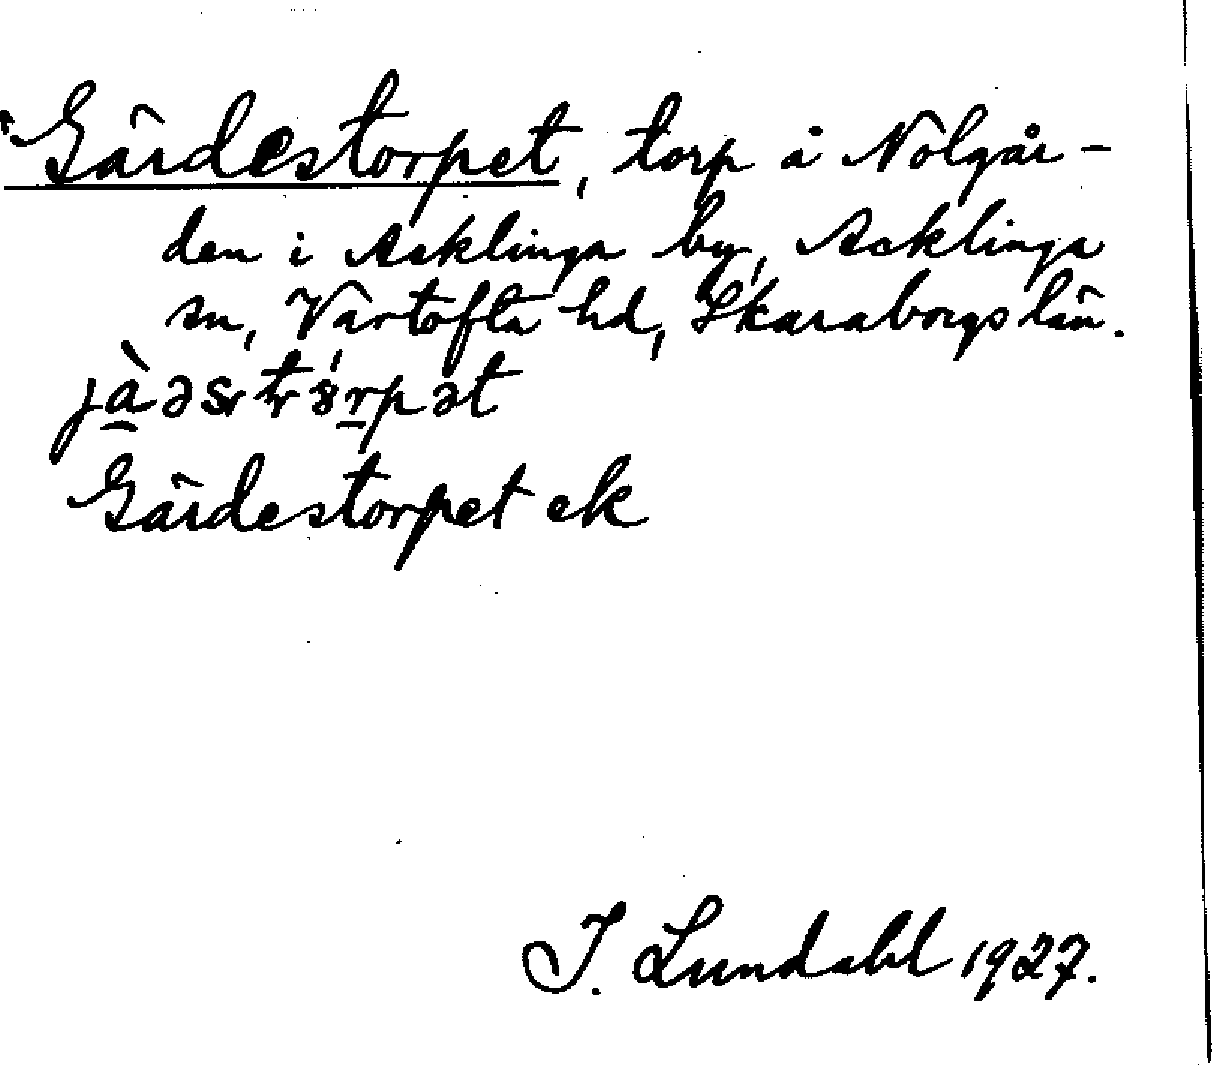 Gärdestorpet, torp å Nolgår-
den i Acklinga by, Acklinga
sn, Vartofta hd, Skaraborgs län.
Gärdestorpet ek
I. Lundahl 1927.